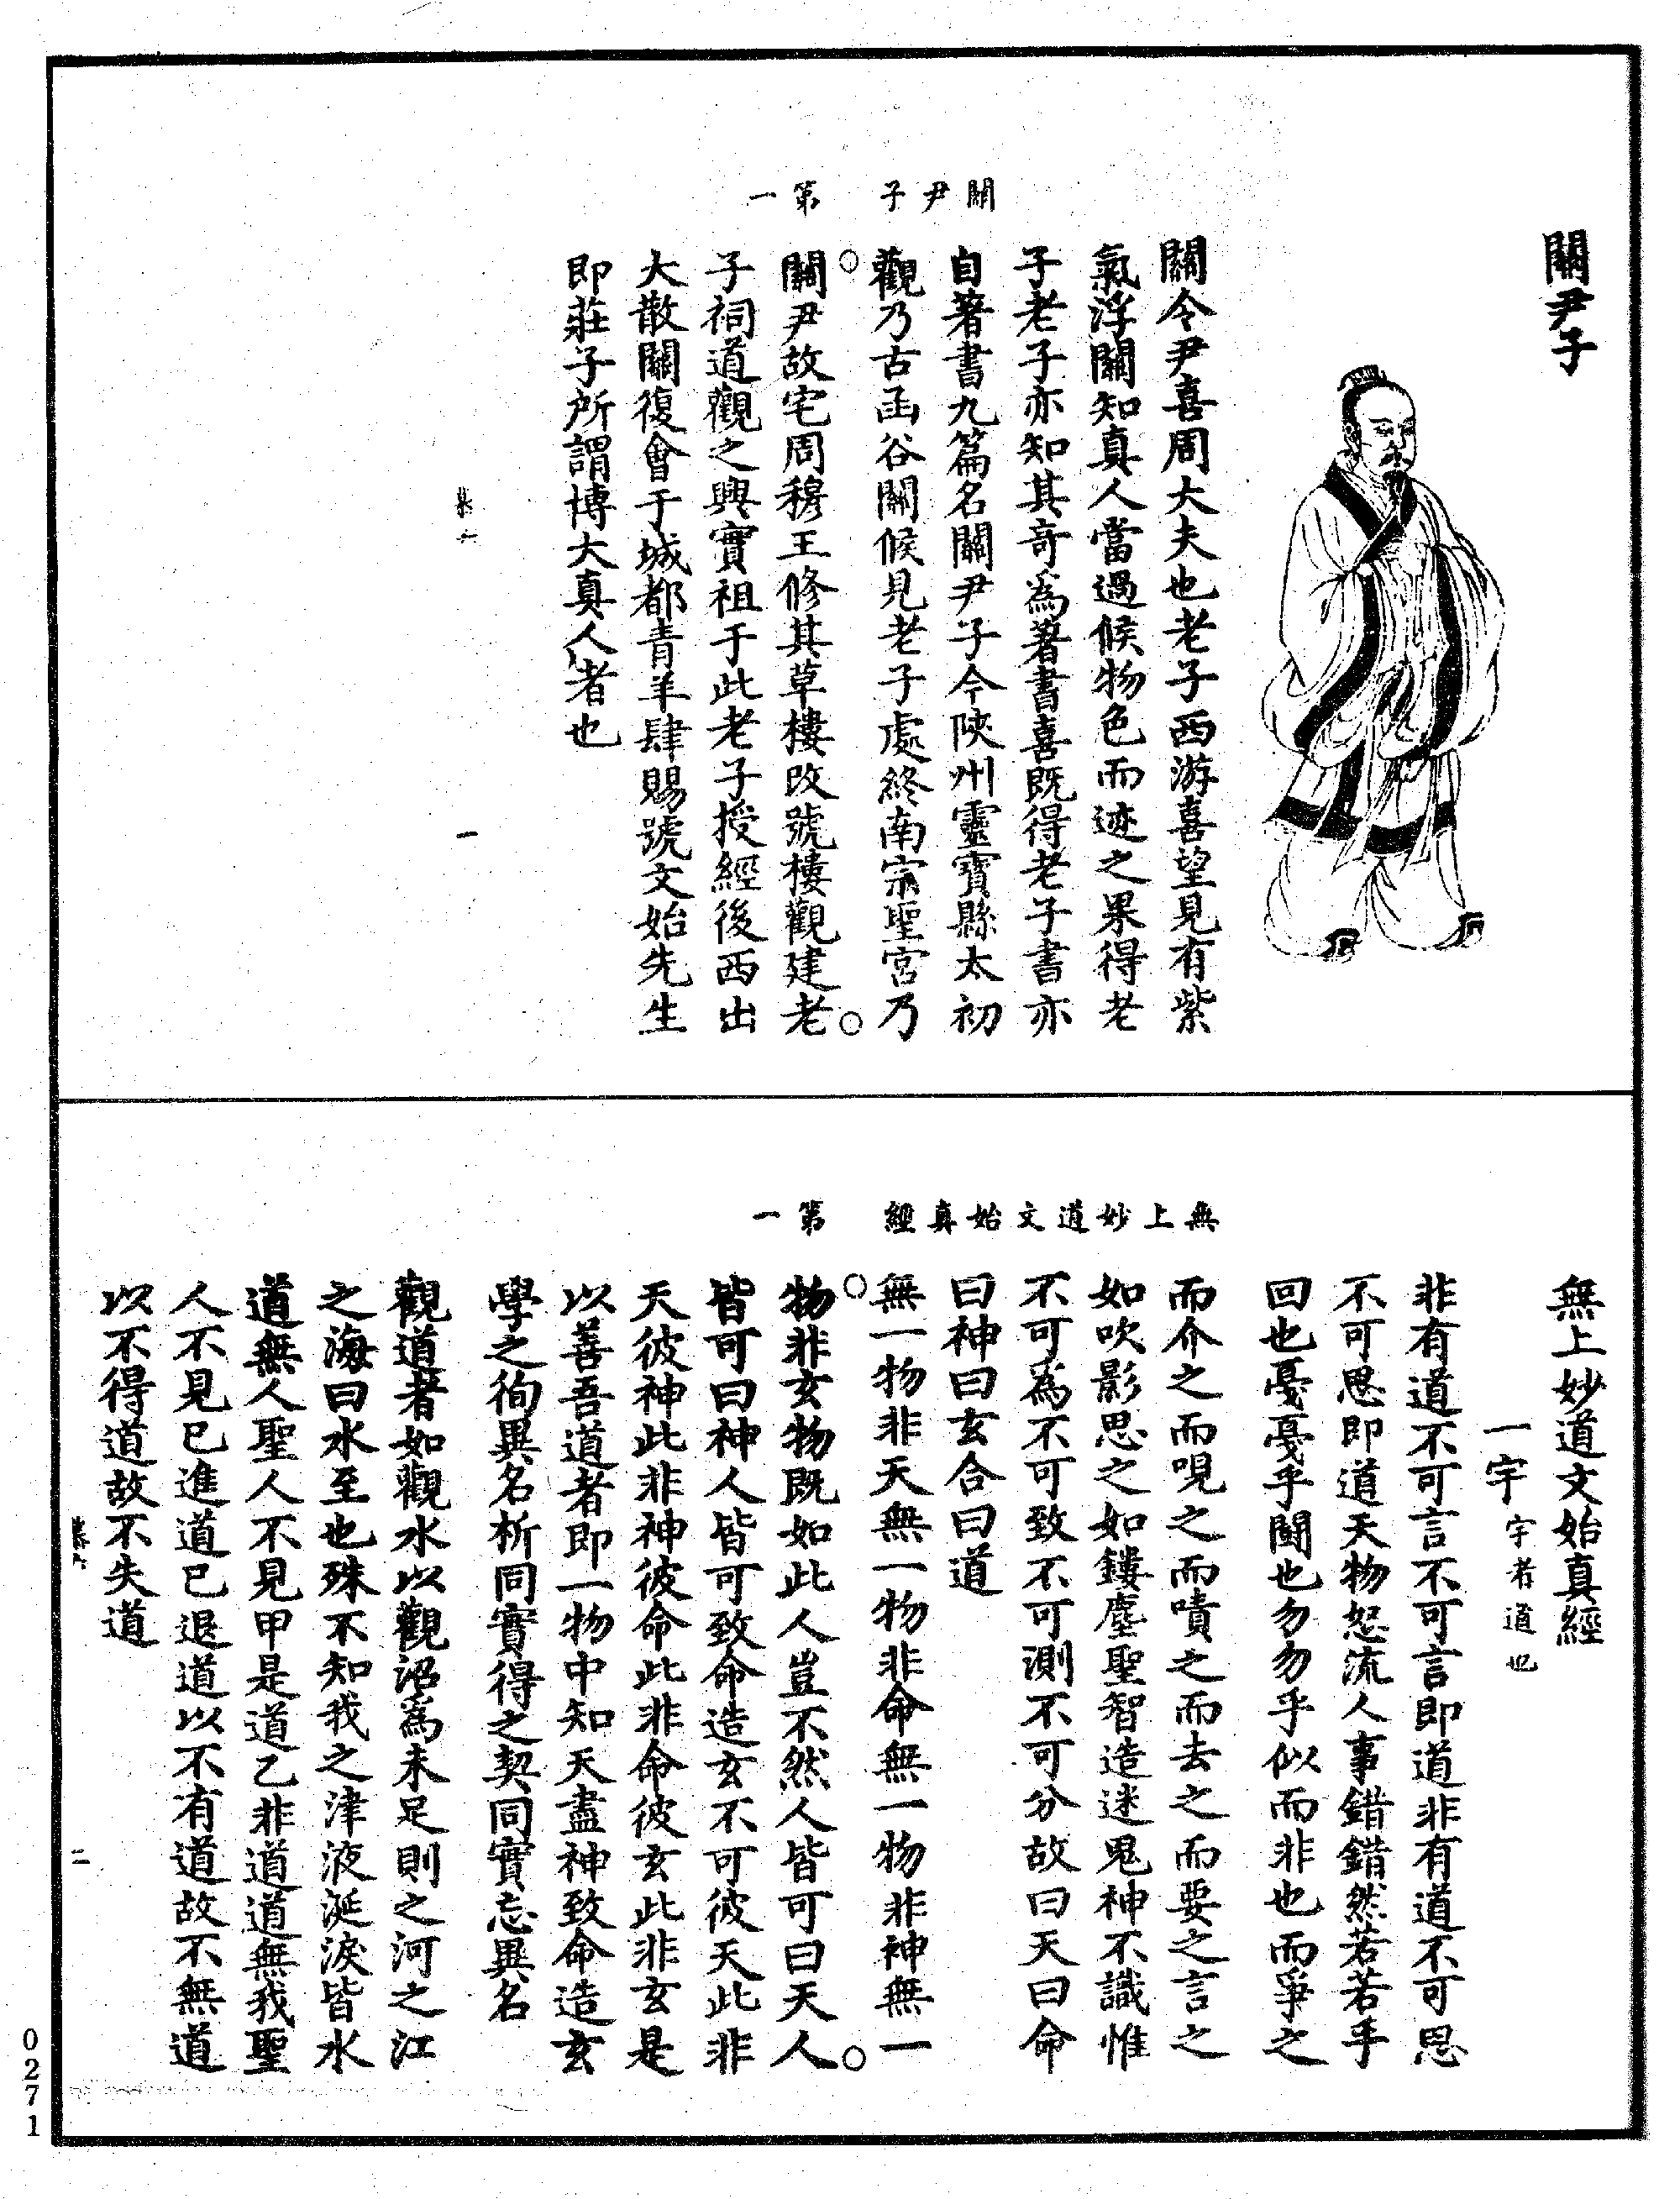 關尹子
關令尹喜周大夫也老子西游喜望見有紫
氣浮關知真人當過候物色而迹之果得老
子老子亦知其奇爲著書喜既得老子書亦
自著書九篇名關尹子今陝州靈寶縣太初
觀乃古函谷關候見老子處終南宗聖宮乃
關尹故宅周穆王修其草樓改號樓觀建老
子祠道觀之興實祖于此老子授經後西出
大散關復會于城都青羊肆賜號文始先生
即莊子所謂博大真人者也
關尹子 第一
一
無上妙道文始真經
一宇 宇者道也
非有道不可言不可言即道非有道不可思
不可思即道天物怒流人事錯錯然若若乎
回也戞戞乎鬪也勿勿乎似而非也而爭之
而介之而哯之而嘖之而去之而要之言之
如吹影思之如鏤塵聖智造迷鬼神不識惟
不可爲不可致不可測不可分故曰天曰命
曰神曰玄合曰道
無一物非天無一物非命無一物非神無一
物非玄物既如此人豈不然人皆可曰天人
皆可曰神人皆可致命造玄不可彼天此非
天彼神此非神彼命此非命彼玄此非玄是
以善吾道者即一物中知天盡神致命造玄
學之徇異名析同實得之契同實忘異名
觀道者如觀水以觀沼爲未足則之河之江
之海曰水至也殊不知我之津液涎淚皆水
道無人聖人不見甲是道乙非道道無我聖
人不見已進道已退道以不有道故不無道
以不得道故不失道
無上妙道文始真經 第一
二
0271